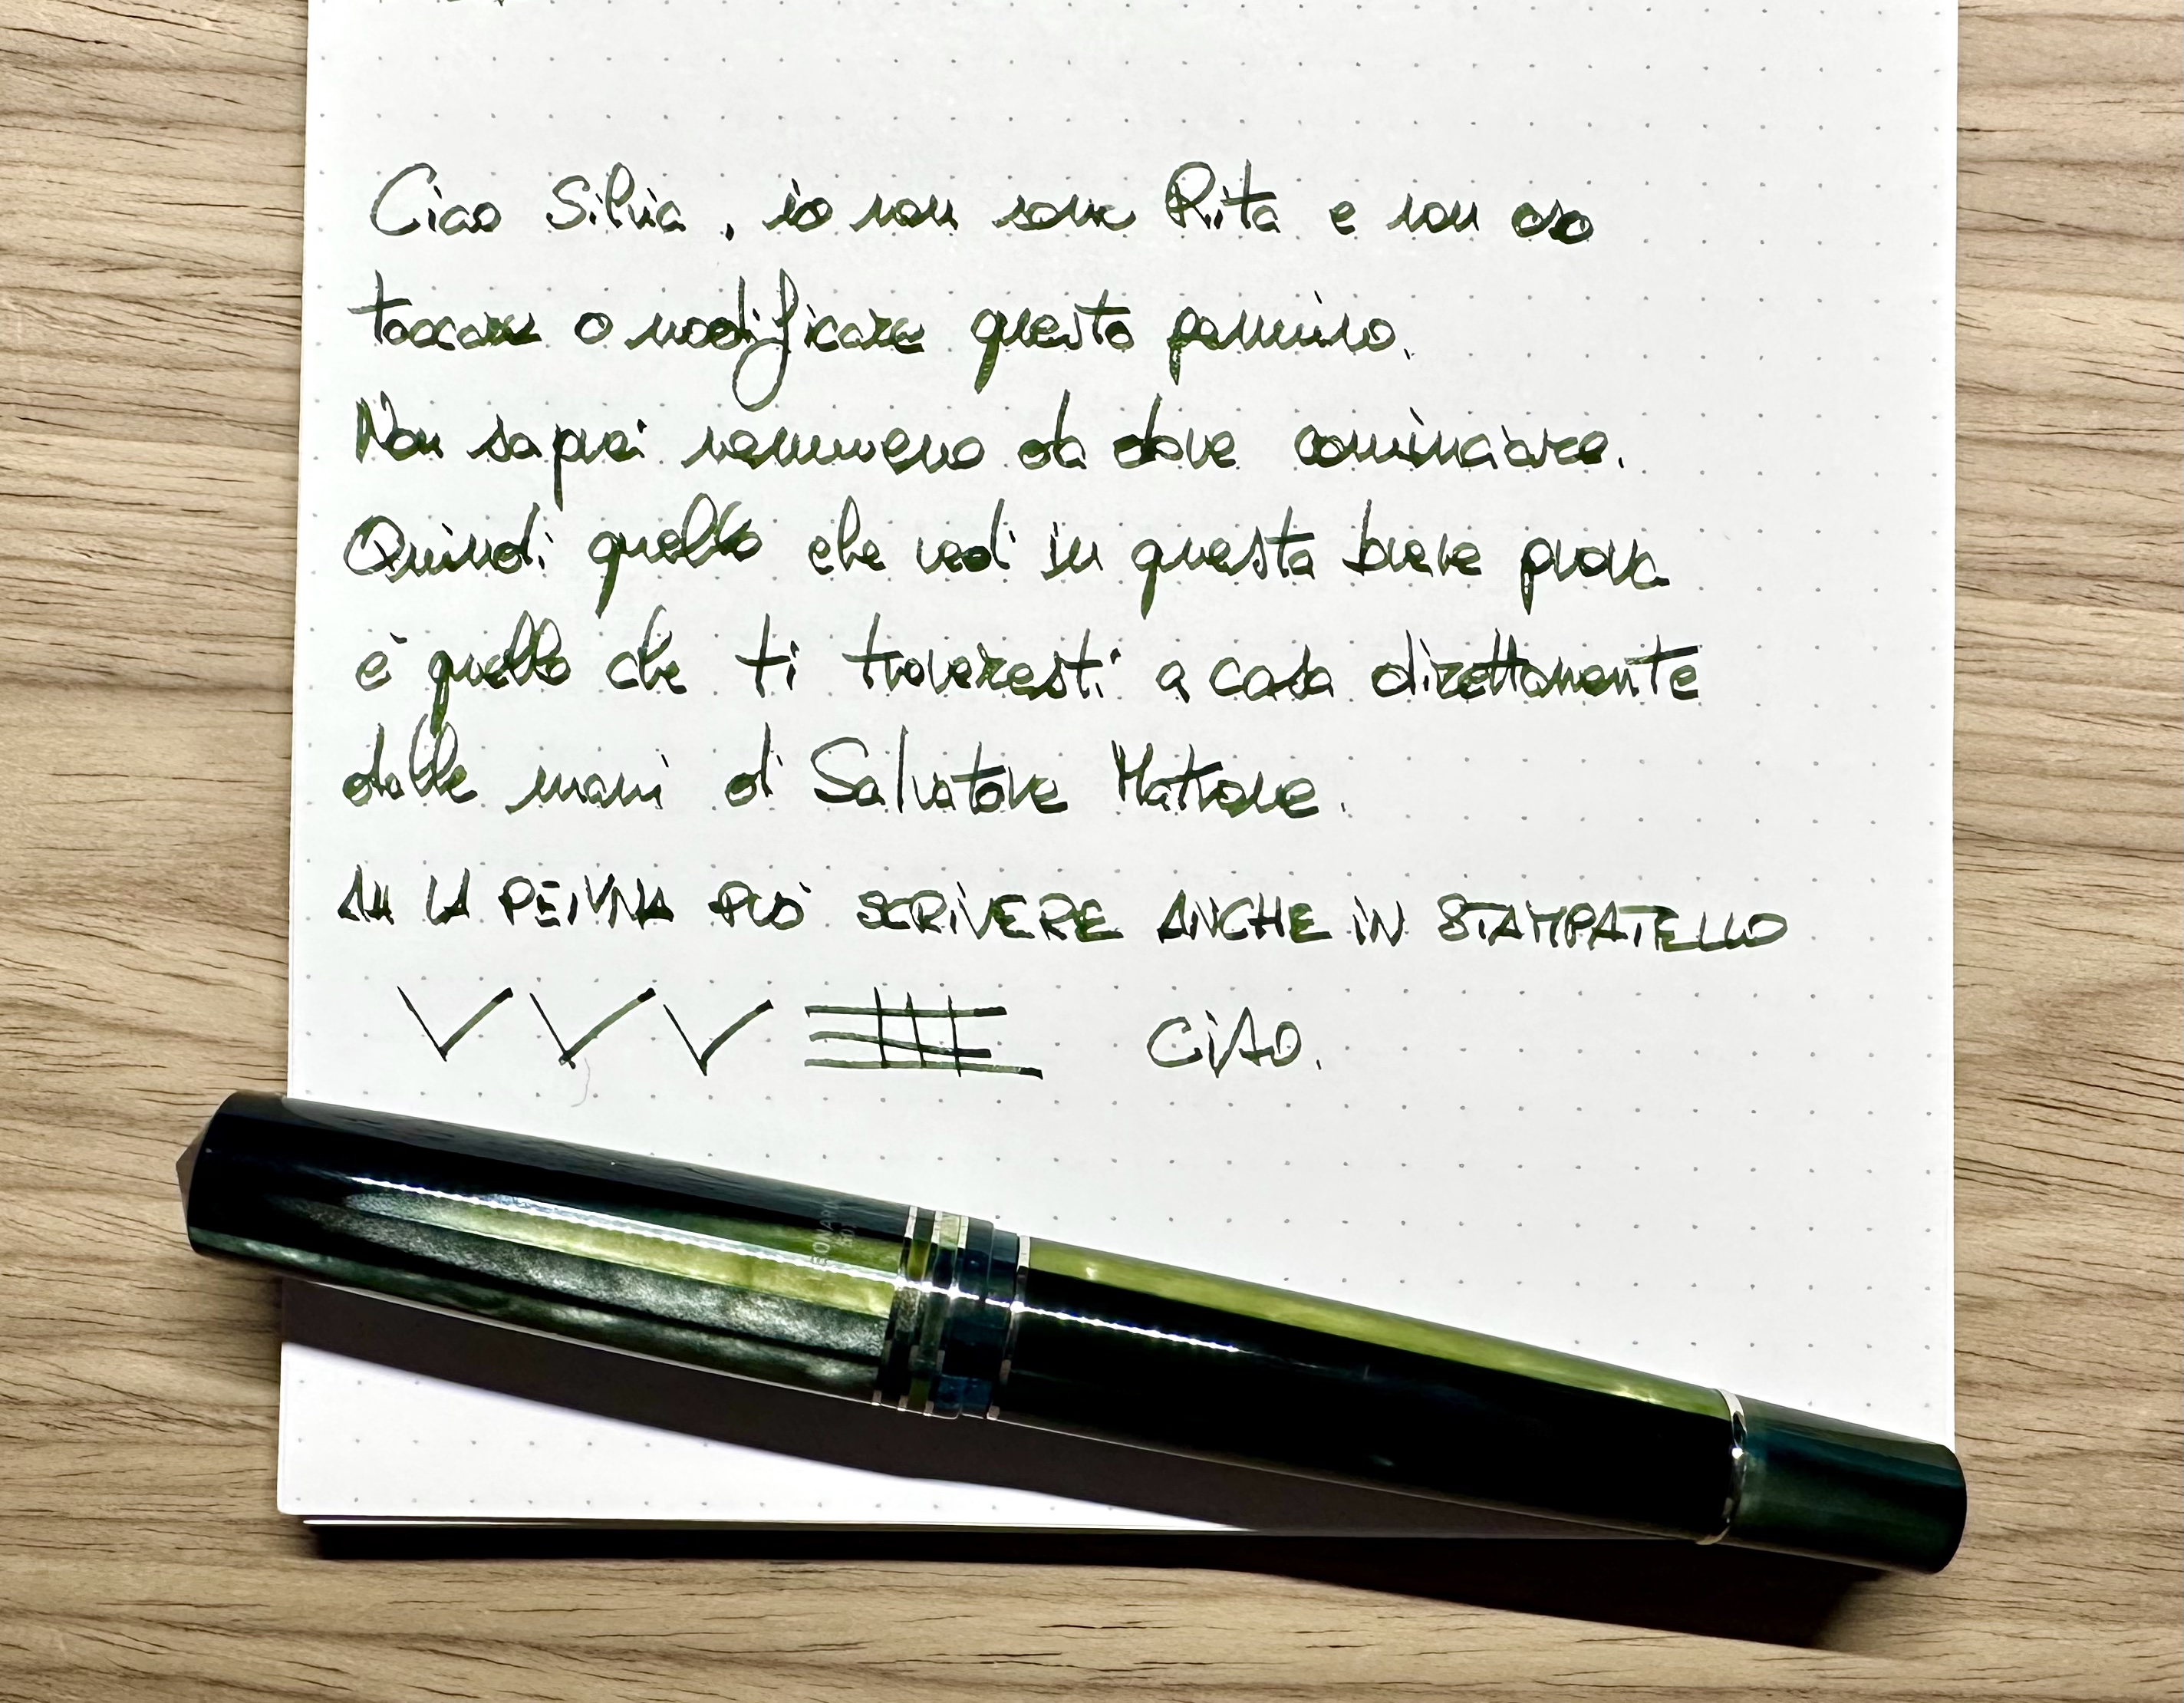 Ciao Silvia, io non sono Rita e non oso
toccare o modificare questo pennino.
Non saprei nemmeno da dove cominciare.
Quindi quello che vedi in questa breve prova
è quello che ti troveresti a casa direttamente
dalle mani di Salvatore Matrone.
AH LA PENNA PUÒ SCRIVERE ANCHE IN STAMPATELLO
CIAO.